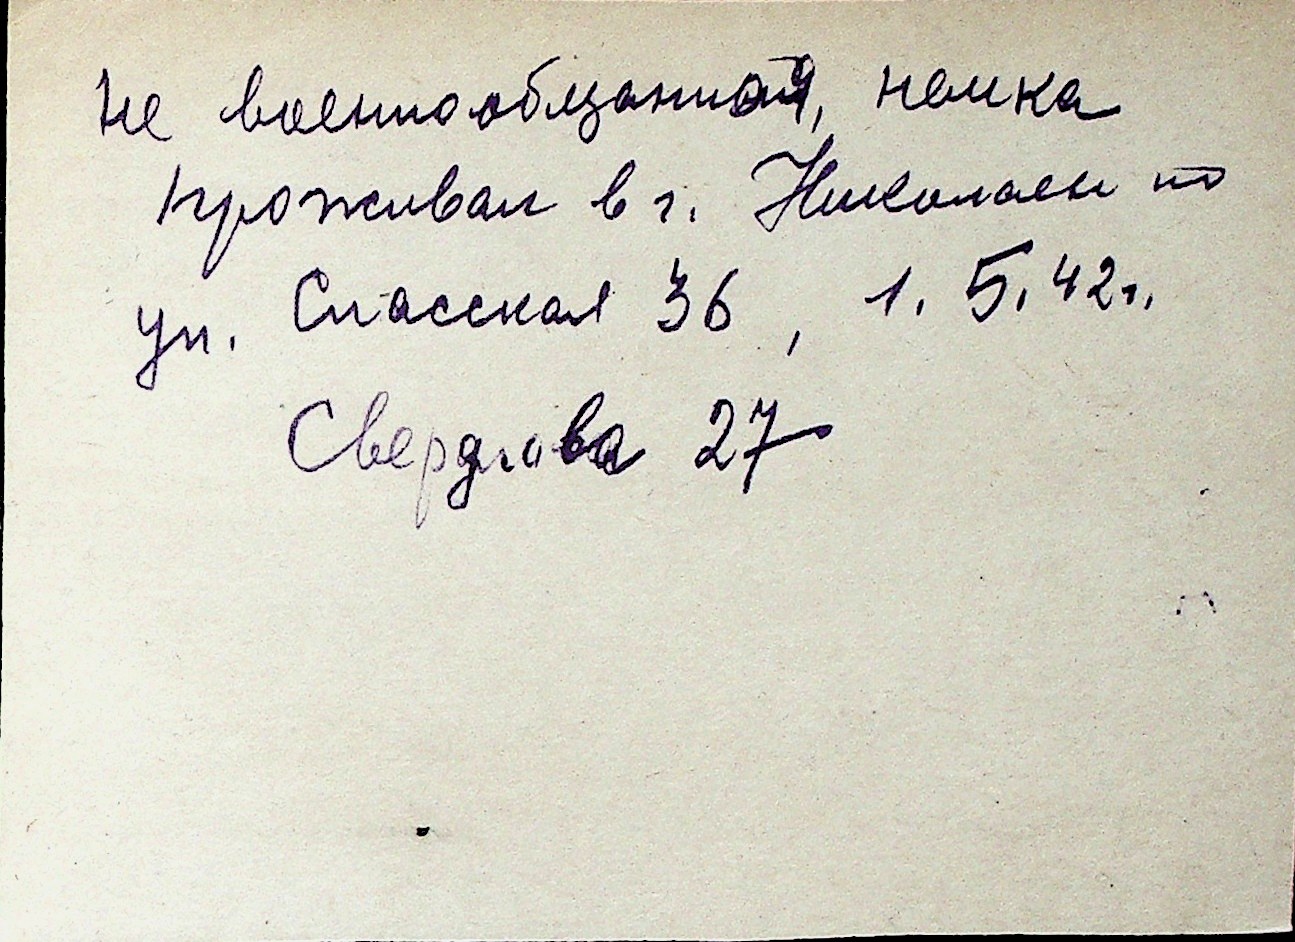 Не военнообязанная, немка
проживал в г. Николаеве по
ул. Спасская 36, 1.5.42г.
Свердлова 27